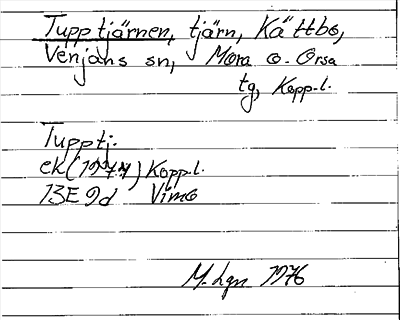 Tupptjärnen, tjärn, Kättbo,
Venjans sn, Mora o. Orsa
tg, Kopp.l.
Tupptj.
ek (1974) Kopp.l.
13E 9d Vimo
M. Lgn 1976